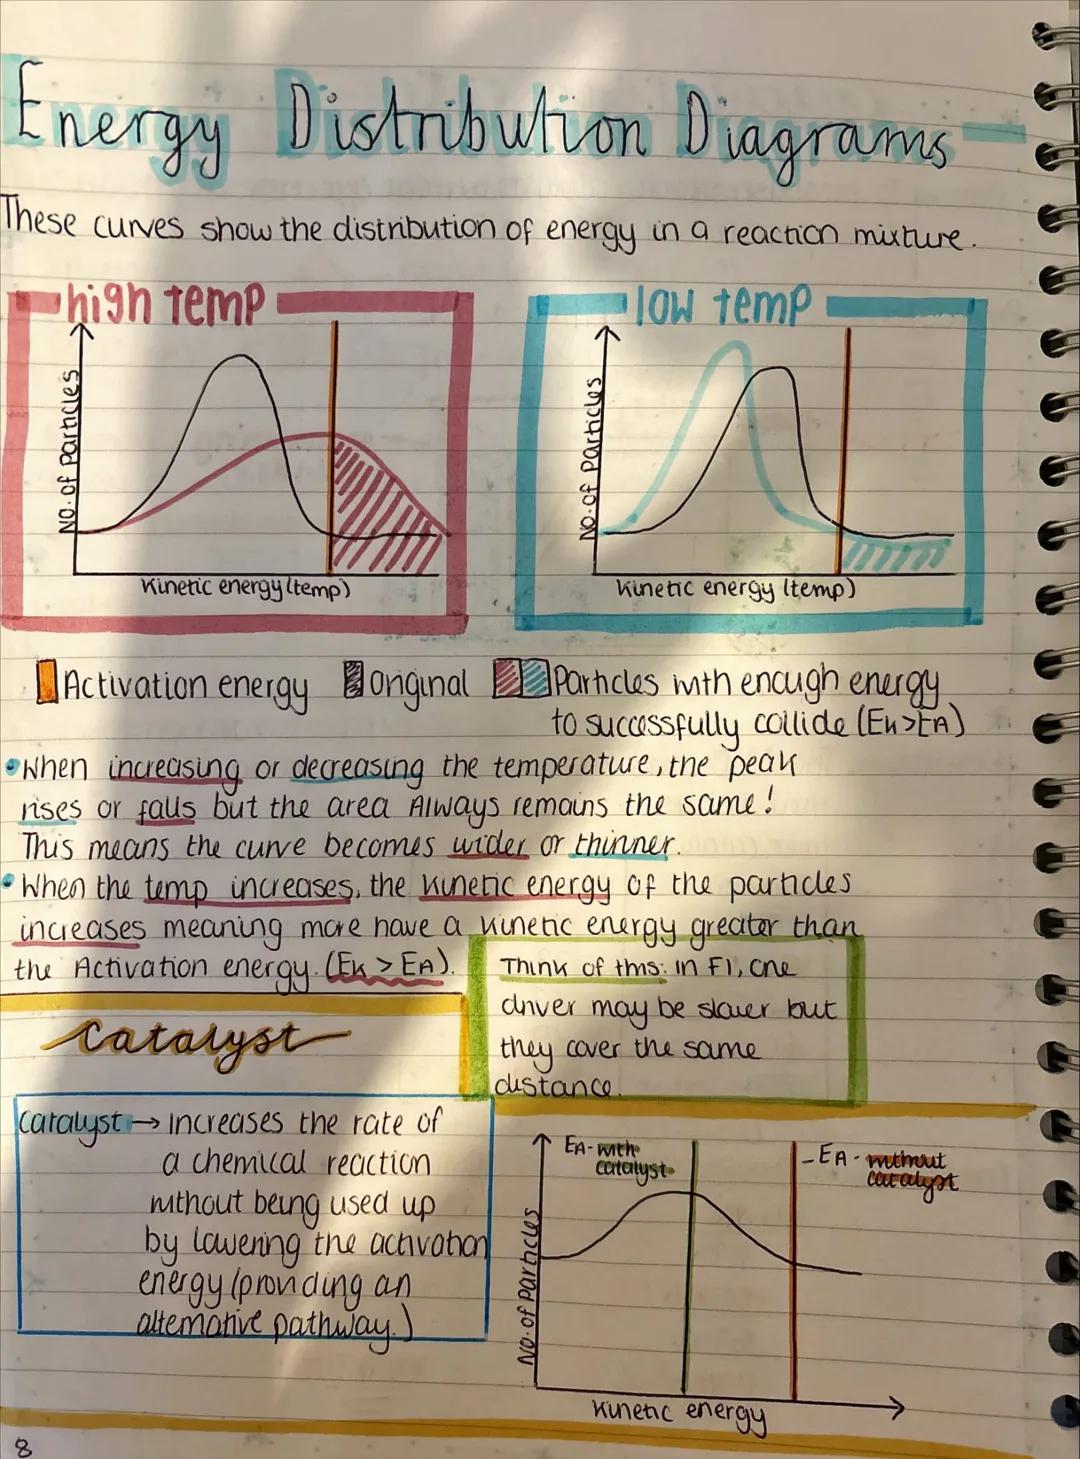 Energy Distribution Diagrams
These curves show the distribution of energy in a reaction mixture.
high temp
No. of Particles
Kinetic energy (temp)
low temp
No. of Particles
Kinetic energy (temp)
Activation energy
Original
Particles with enough energy
to successfully collide (EK>EA)
•When increasing or decreasing the temperature, the peak
rises or falls but the area Always remains the same!
This means the curve becomes wider or thinner.
•When the temp increases, the kinetic energy of the particles
increases meaning more have a kinetic energy greater than
the Activation energy. (EK > EA).
Think of this: in F1, one
driver may be slower but
they cover the same
distance.
Catalyst
Catalyst → Increases the rate of
a chemical reaction
without being used up
by lowering the activation
energy (providing an
alternative pathway.)
EA - with
catalyst
- EA - without
catalyst
No. of Particles
Kinetic energy
8